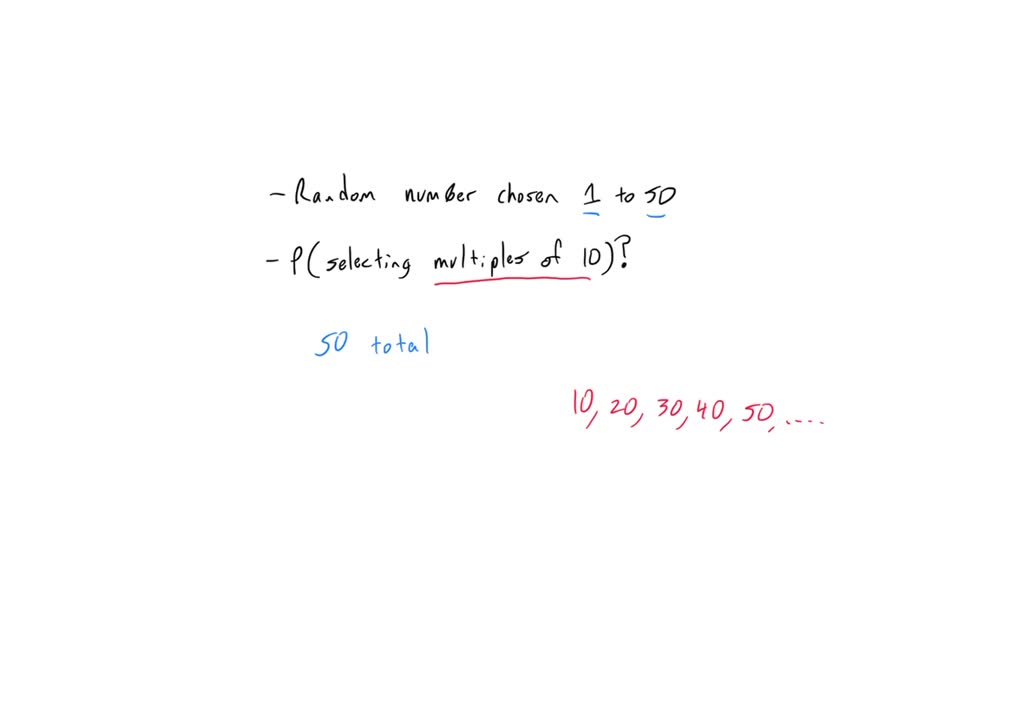 - Random number chosen 1 to 50
- P(selecting multiples of 10)?
50 total
10, 20, 30, 40, 50, ....